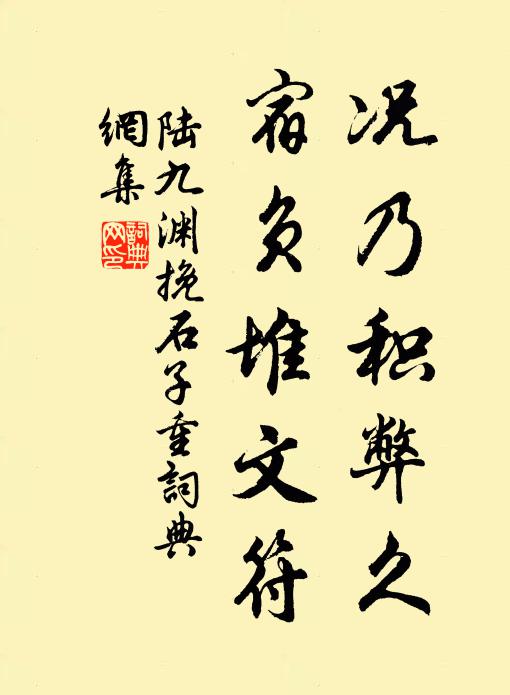 况乃积弊久
宿负堆文符
陆九渊挽石子重詞典
網集
詞典
网印